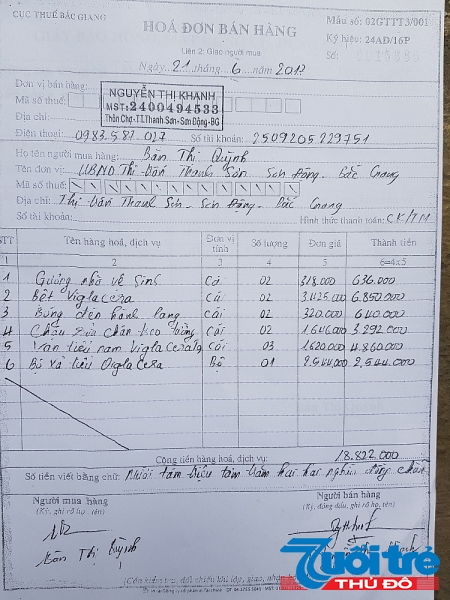 CỤC THUẾ BẮC GIANG
HOÁ ĐƠN BÁN HÀNG
Mẫu số: 02GTTT3/001
Ký hiệu: 24AD/16P
Liên 2: Giao người mua
Số:
Ngày 21 tháng 6 năm 2017
Đơn vị bán hàng:
NGUYỄN THỊ KHANH
Mã số thuế:
MST: 2400494533
Thôn Chợ-TT.Thanh Sơn-Sơn Động-BG
Địa chỉ:
Điện thoại: 0983.581.027 Số tài khoản: 2509205229751
Họ tên người mua hàng: Bàn Thị Quỳnh
Tên đơn vị: UBND Thị trấn Thanh Sơn Sơn Động - Bắc Giang
Mã số thuế:
Địa chỉ: Thị trấn Thanh Sơn - Sơn Động - Bắc Giang
Số tài khoản: Hình thức thanh toán: CK/TM
STT Tên hàng hoá, dịch vụ Đơn vị tính Số lượng Đơn giá Thành tiền
1 2 3 4 5 6=4x5
1 Gương nhà vệ sinh Cái 02 318.000 636.000
2 Bệt Viglacera Cái 02 3.425.000 6.850.000
3 Bóng đèn hành lang Cái 02 320.000 640.000
4 Chậu rửa chân treo tường Cái 02 1.646.000 3.292.000
5 Van tiểu nam Viglacera Cái 03 1.620.000 4.860.000
6 Bộ xả tiểu Viglacera Bộ 01 2.544.000 2.544.000
Cộng tiền hàng hoá, dịch vụ: 18.822.000
Số tiền viết bằng chữ: Mười tám triệu tám trăm hai hai nghìn đồng chẵn
Người mua hàng Người bán hàng
(Ký, ghi rõ họ, tên) (Ký, đóng dấu, ghi rõ họ, tên)
Bàn Thị Quỳnh
Tuổi trẻ
THỦ ĐÔ
(Cần kiểm tra, đối chiếu khi lập, giao, nhận